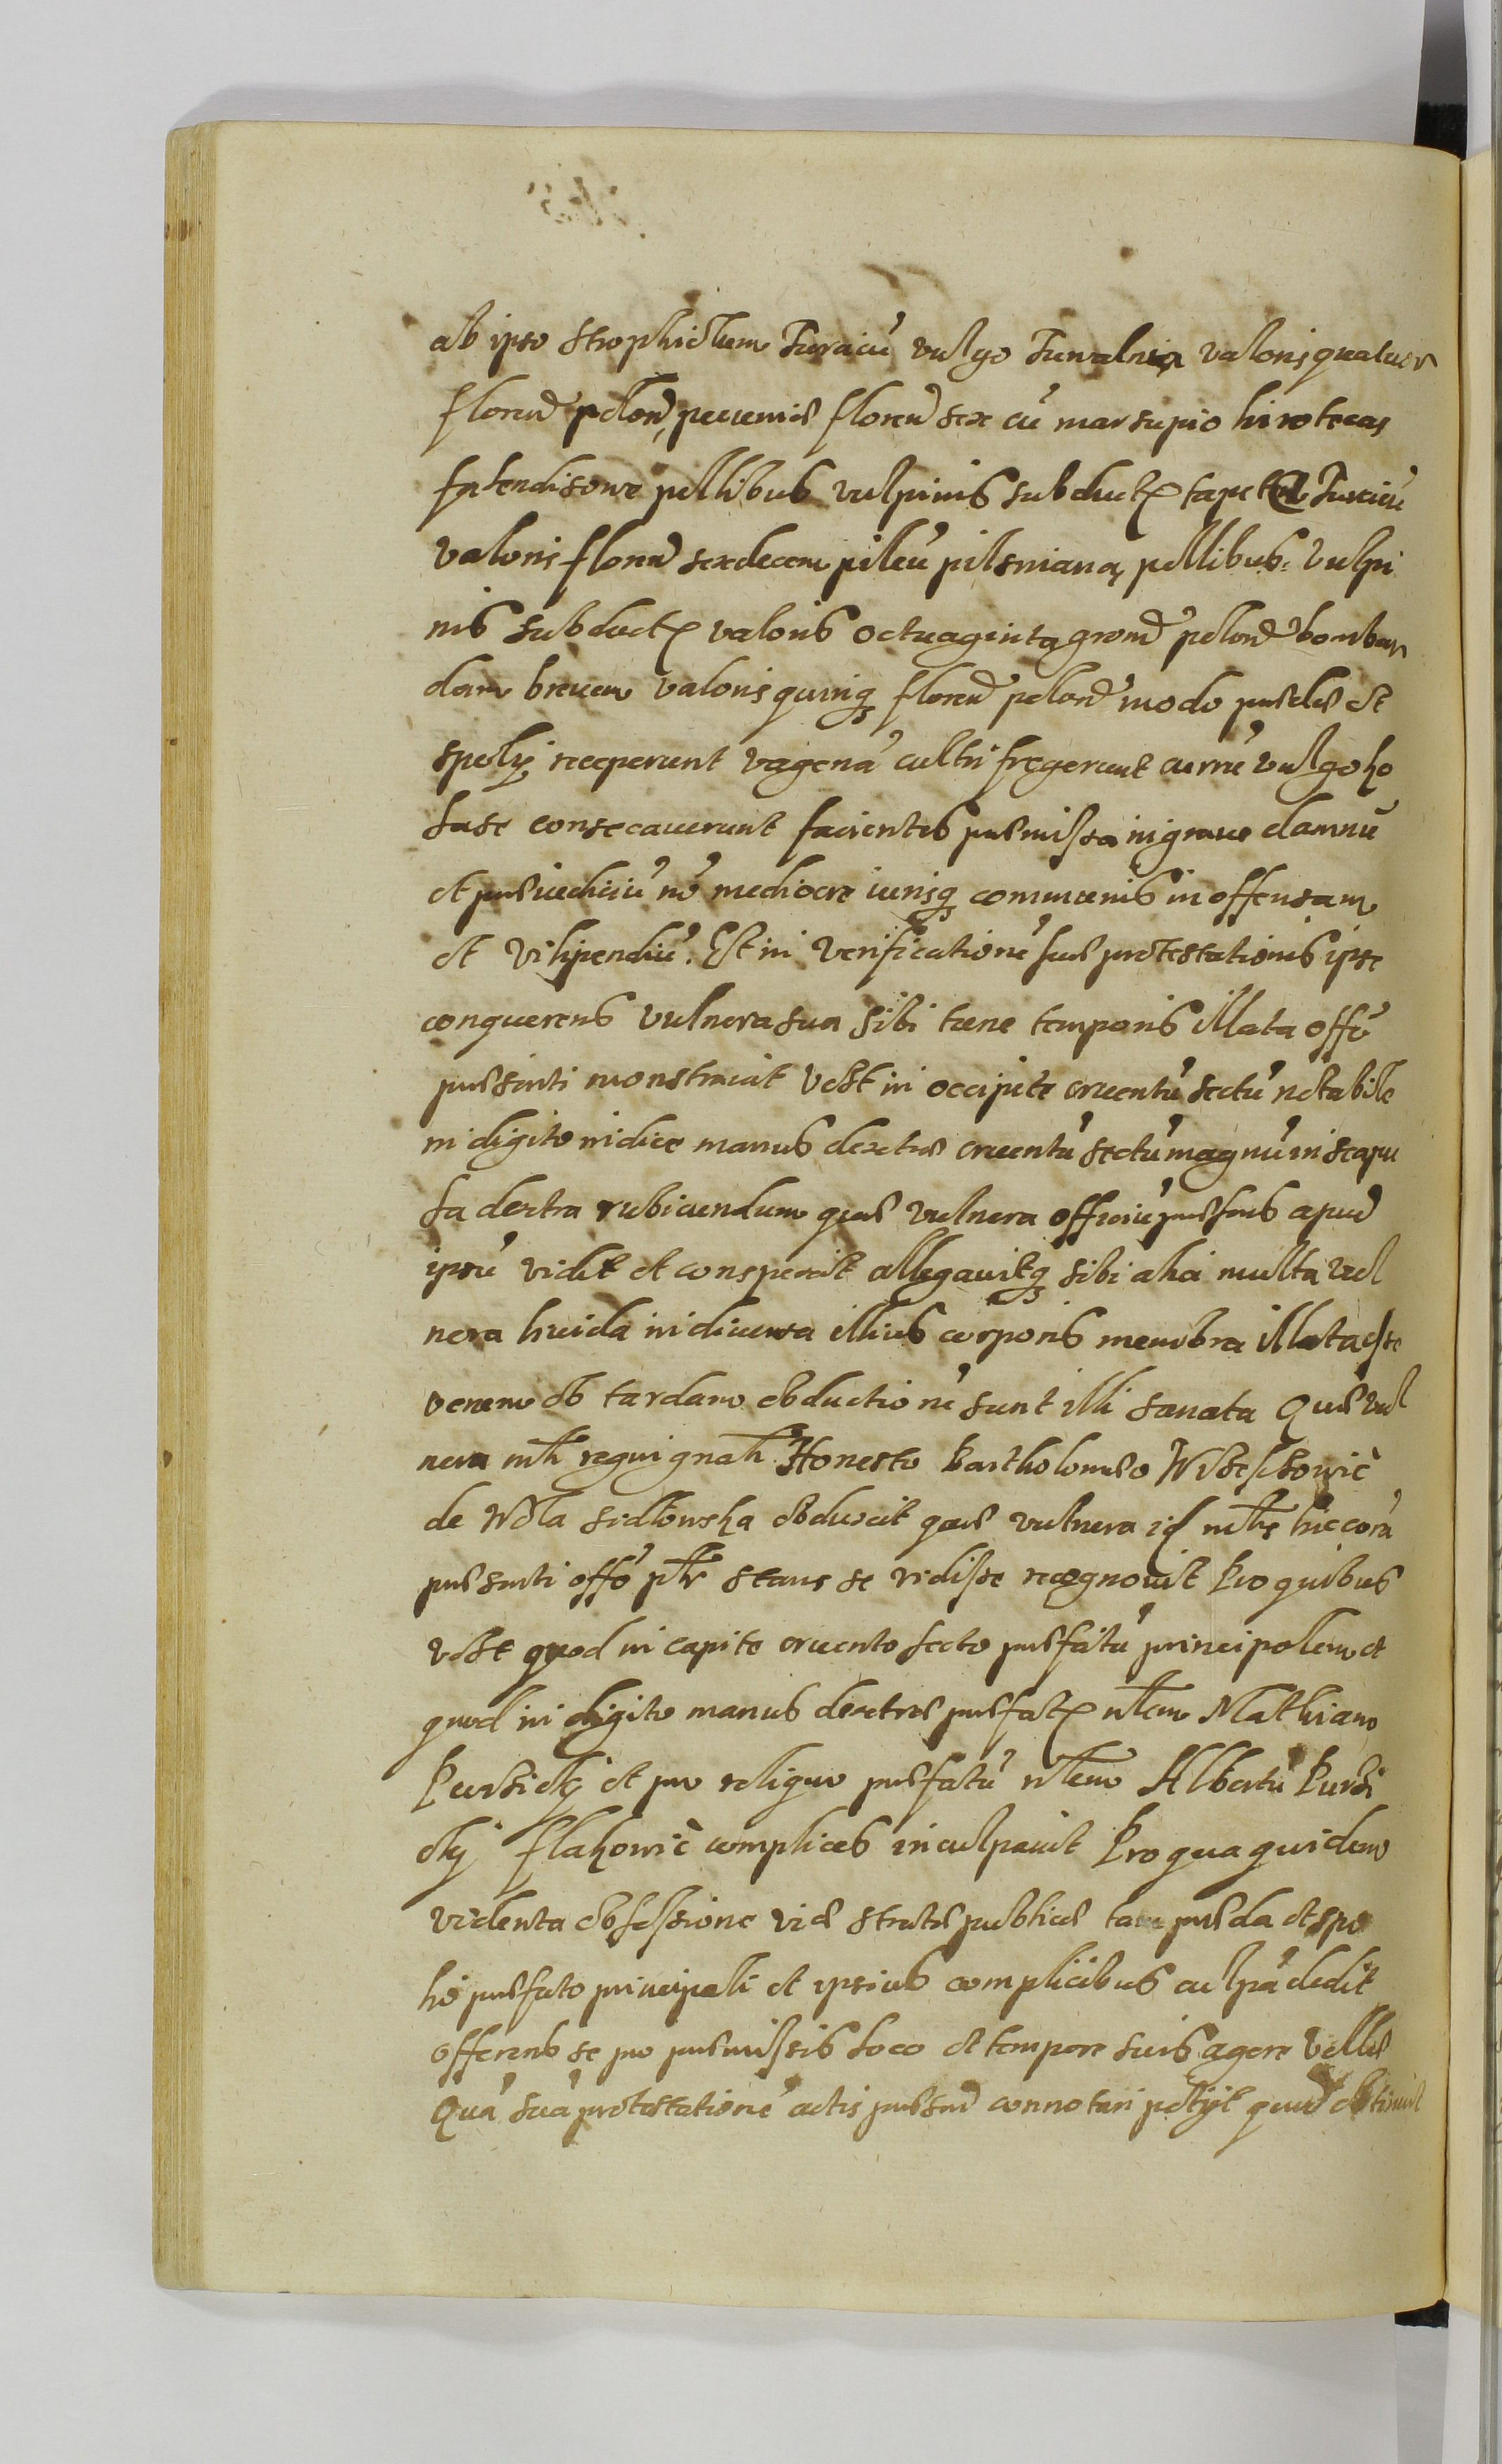 ab ipso strophiolum Turcicū vulgo Tuwalnia valoris quatuor
floren̄ polon̄, pecuniæ floren̄ sex cū marsupio hirotecas
falendisowe pellibus vulpinis subduct tapetem Turcicū
valoris floren̄ sexdecem pileū pilsniana pellibus vulpi
nis subduct valoris octuaginta gron̄ polon̄ bombar
dam breuem valoris quinq floren̄ polon̄ modo prædæ et
spolÿ receperunt vagenā cultri fregerunt currū vulgo ko
lase consecauerunt facientes præmissa in graue damnū
et præiudiciū nō mediocre iurisq communis in offensam
et vilipendiū. Et in verificationē suæ protestationis ipse
conquerens vulnera sua sibi tunc temporis illata offō
præsenti monstrauit Vdlt in occipite cruentū sectū notabile
in digito indice manus dextræ cruentū sectū magnū in scapu
la dextra rubicundum quæ vulnera officiū præsens apud
ipsū vidit et conspexit allegauitq sibi alia multa vul
nera liuida in diuersa illius corporis membra illata esse
verum ob tardam obductionē sunt illi sanata Quæ vul
nera mtli regni gnali Honesto Bartholomæo Wiseskowic
de Wola sidlowska obduxit quæ vulnera id mtlis hic corā
præsenti offō ptlr stans se vidisse recognouit Pro quibus
vdlt quod in capite cruento secto præfatū principalem et
quod in digito manus dextræ præfat nlem Mathiam
Pursickÿ et pro reliquo præfatū nlem Albertū Pursi
ckÿ flakowic complices inculpauit Pro qua quidem
violenta obsessione viæ stratæ publicæ tam præda et spo
lio præfato principali et ipsius complicibus culpā dedit
offerens se pro præmissis loco et tempore suis agere velle
Quā suā protestationē actis præsen̄ connotari petÿt quod obtinuit